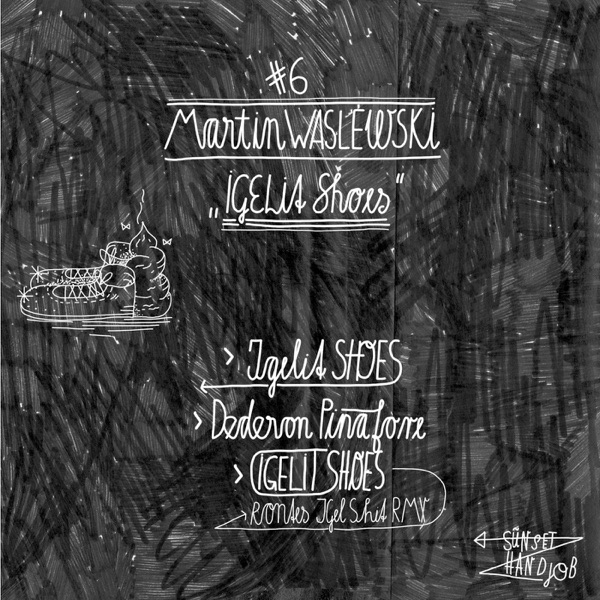 #6
Martin WASLEWSKi
„iGELit Shoes“
> Igelit SHOES
> Dederon Pinafore
> IGELIT SHOES
RONtes IGel Shit RMX
SÜNSET
HANDJOB